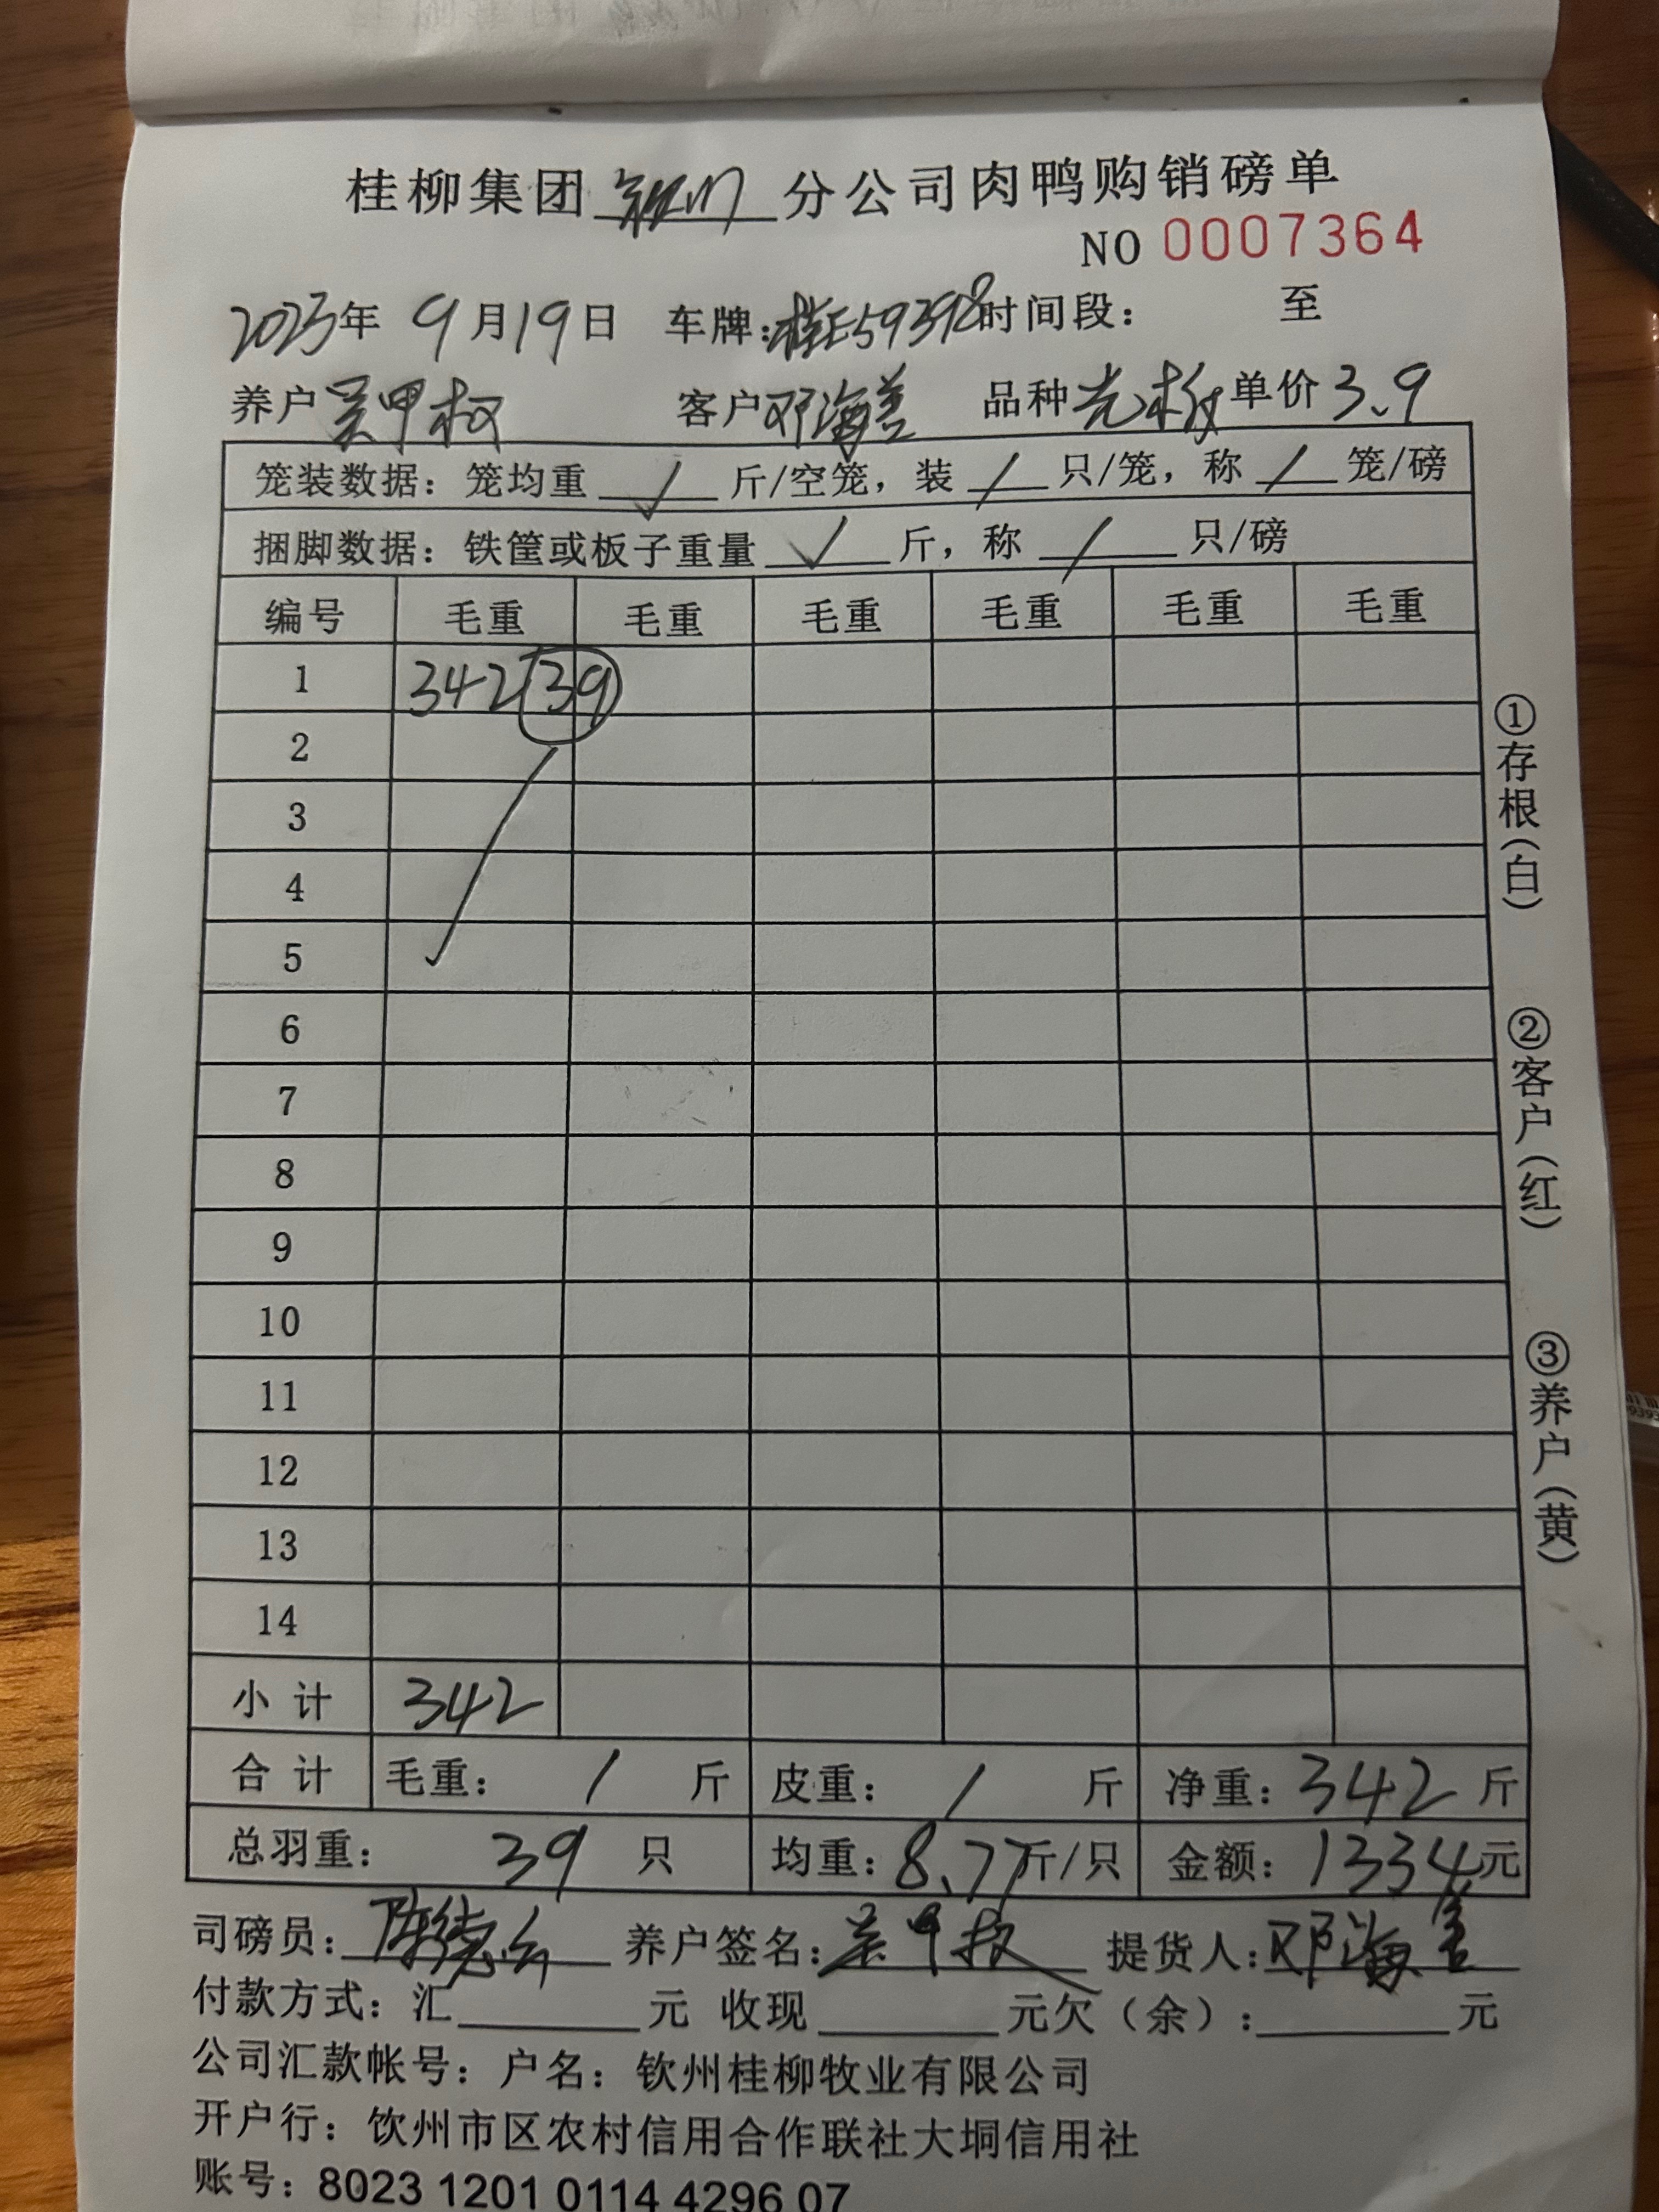 桂柳集团钦州分公司肉鸭购销磅单
NO 0007364
2023年 9月19日 车牌:桂E59398时间段: 至
养户吴甲权 客户邓海善 品种 单价3.9
笼装数据:笼均重 / 斤/空笼,装 / 只/笼,称 / 笼/磅
捆脚数据:铁筐或板子重量 / 斤,称 / 只/磅
编号 毛重 毛重 毛重 毛重 毛重 毛重
1 342 39
2
3
4
5
6
7
8
9
10
11
12
13
14
小计 342
合计 毛重: / 斤 皮重: / 斤 净重:342斤
总羽重: 39 只 均重:8.77斤/只 金额:1334元
司磅员: 养户签名:吴甲权 提货人:邓海善
付款方式:汇 元 收现 元欠(余): 元
公司汇款帐号:户名:钦州桂柳牧业有限公司
开户行:钦州市区农村信用合作联社大垌信用社
账号:8023 1201 0114 4296 07
①存根(白)
②客户(红)
③养户(黄)